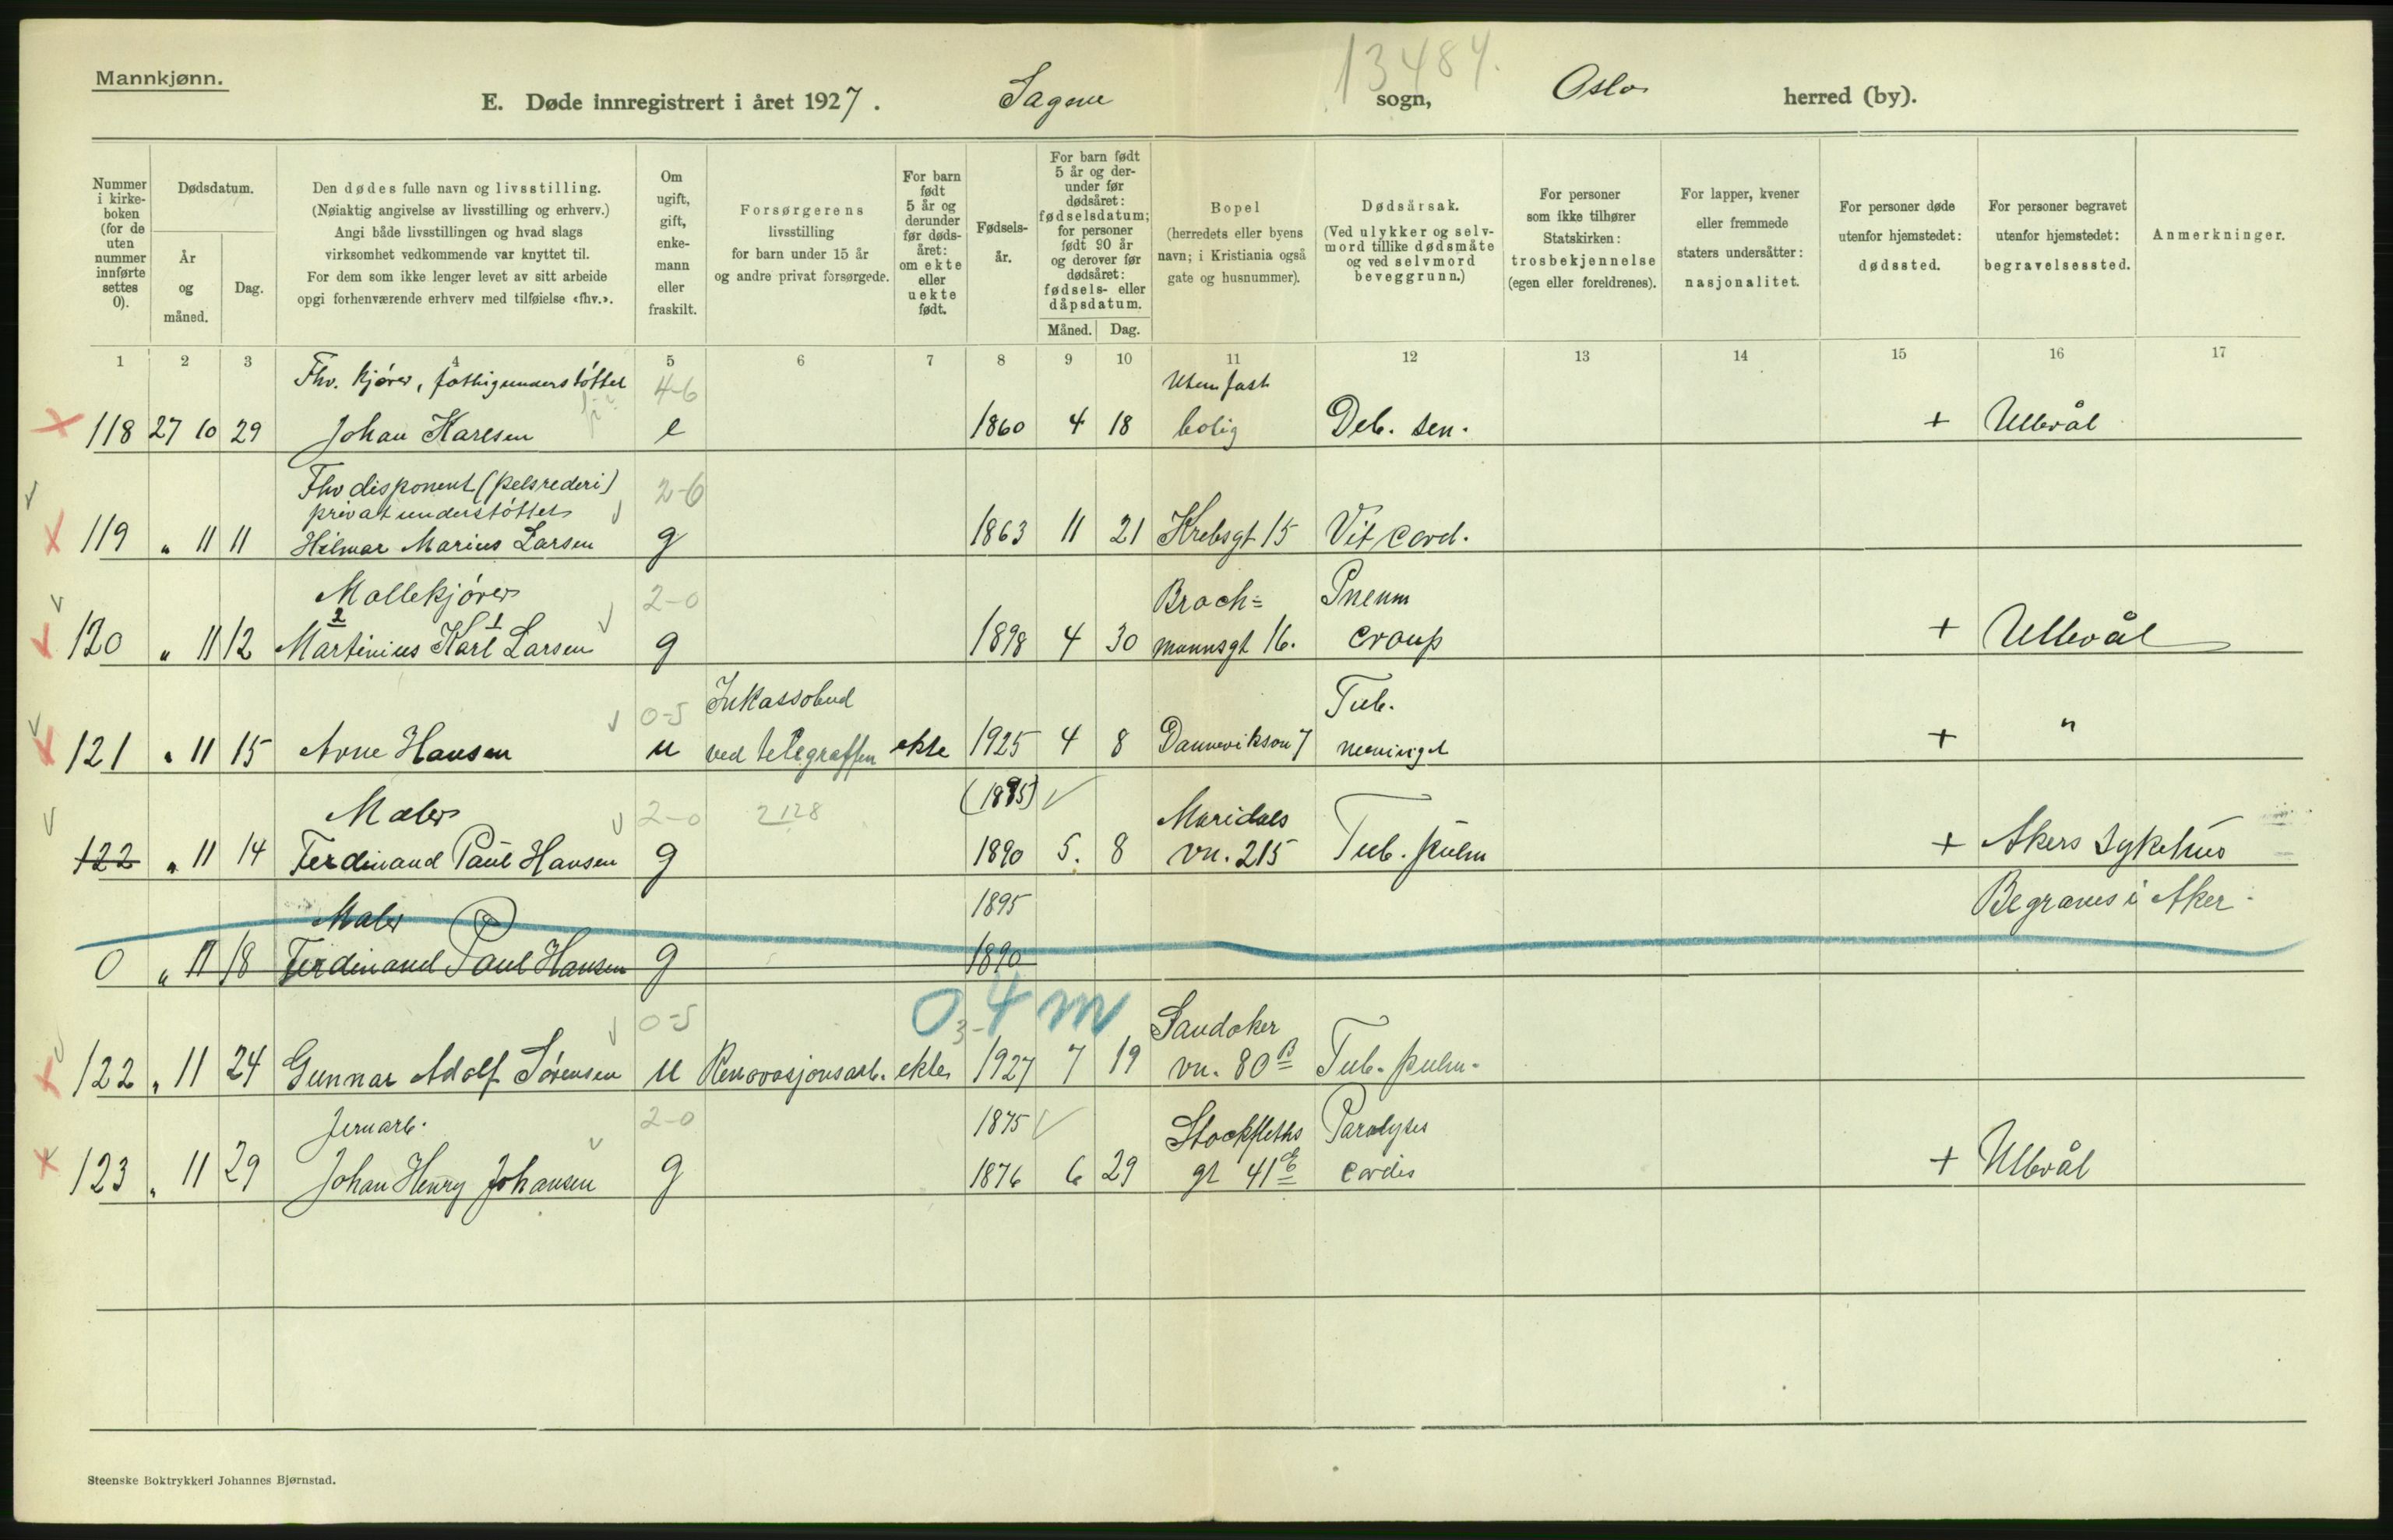 Mannkjønn.
13484.
E. Døde innregistrert i året 1927. Sagene sogn, Oslo herred (by).
Nummer i kirke-boken (for de uten nummer innførte settes 0).
Dødsdatum.
År og måned.
Dag.
Den dødes fulle navn og livsstilling.
(Nøiaktig angivelse av livsstilling og erhverv.)
Angi både livsstillingen og hvad slags
virksomhet vedkommende var knyttet til.
For dem som ikke lenger levet av sitt arbeide
opgi forhenværende erhverv med tilføielse «fhv.».
Om ugift, gift, enke-mann eller fraskilt.
Forsørgerens livsstilling for barn under 15 år og andre privat forsørgede.
For barn født 5 år og derunder før døds-året: om ekte eller uekte født.
Fødsels-år.
For barn født 5 år og der-under før dødsåret: fødselsdatum; for personer født 90 år og derover før dødsåret: fødsels- eller dåpsdatum.
Måned. Dag.
Bopel (herredets eller byens navn; i Kristiania også gate og husnummer).
Dødsårsak. (Ved ulykker og selv-mord tillike dødsmåte og ved selvmord beveggrunn.)
For personer som ikke tilhører Statskirken: trosbekjennelse (egen eller foreldrenes).
For lapper, kvener eller fremmede staters undersåtter: nasjonalitet.
For personer døde utenfor hjemstedet: dødssted.
For personer begravet utenfor hjemstedet: begravelsessted.
Anmerkninger.
1 2 3 4 5 6 7 8 9 10 11 12 13 14 15 16 17
Fhv. kjører, fattigunderstøttet 4-6 Uten fast
118 27 10 29 Johan Karlsen e 1860 4 18 bolig Deb. sen. + Ullevål
Fhv disponent (pelsrederi) 2-6
privat understøttet
119 " 11 11 Hilmar Marius Larsen g 1863 11 21 Krebsgt 15 Vit cord.
Mollekjører 2-0 Broch= Pneum
2 1
120 " 11 12 Martinius Karl Larsen g 1898 4 30 mannsgt 16. croup + Ullevål
0-5 Inkassobud Tub.
121 " 11 15 Arne Hansen u ved telegraffen ekte 1925 4 8 Dannevikson 7 meningit + "
Maler 2-0 2128 (1895) Maridals
122 " 11 14 Ferdinand Paul Hansen g 1890 5. 8 vn. 215 Tub. pulm + Akers sykehus
Maler 1895 Begraves i Aker.
0 " 11 18 Ferdinand Paul Hansen g 1890
0-5 0 3-4 m Sandaker
122 " 11 24 Gunnar Adolf Sørensen u Renovasjonsarb. ekte 1927 7 19 vn. 80B Tub. pulm.
Jernarb. 2-0 1875 Stockfleths Paralyses
123 " 11 29 Johan Henry Johansen g 1876 6 29 gt 41E cordis + Ullevål
Steenske Boktrykkeri Johannes Bjørnstad.